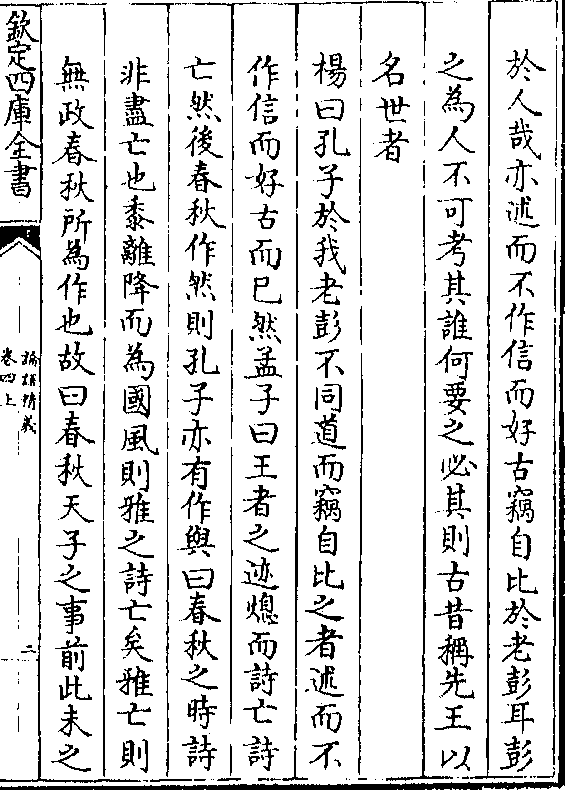 於人哉亦述而不作信而好古竊自比於老彭耳彭
之為人不可考其誰何要之必其則古昔稱先王以
名世者
楊曰孔子於我老彭不同道而竊自比之者述而不
作信而好古而已然孟子曰王者之迹熄而詩亡詩
亡然後春秋作然則孔子亦有作與曰春秋之時詩
非盡亡也黍離降而為國風則雅之詩亡矣雅亡則
無政春秋所為作也故曰春秋天子之事前此未之
欽定四庫全書
論語精義
卷四上
二